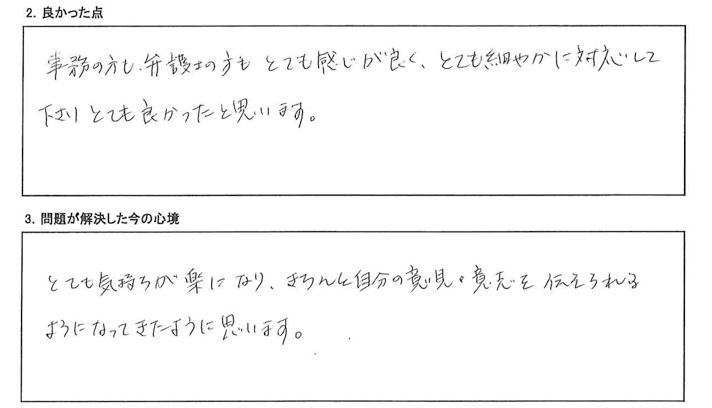 2. 良かった点
事務の方も、弁護士の方も とても感じが良く、とても細やかに対応して
下さり とても良かったと思います。
3. 問題が解決した今の心境
とても気持ちが楽になり、きちんと自分の意見・意志を 伝えられる
ようになってきたように思います。